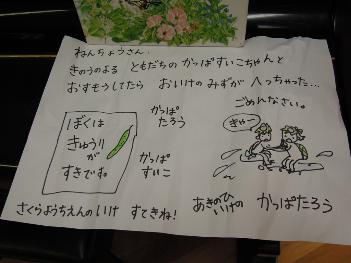 ねんちょうさん、
きのうのよる ともだちの かっぱすいこちゃんと
おすもうしてたら おいけの みずが へっちゃった…
ごめんなさい。
きゃー
かっぱ
たろう
かっぱ
すいこ
ぼくは
きゅうり
が
すきです。
あきのひ
いけの かっぱたろう
さくらようちえんのいけ すてきね!